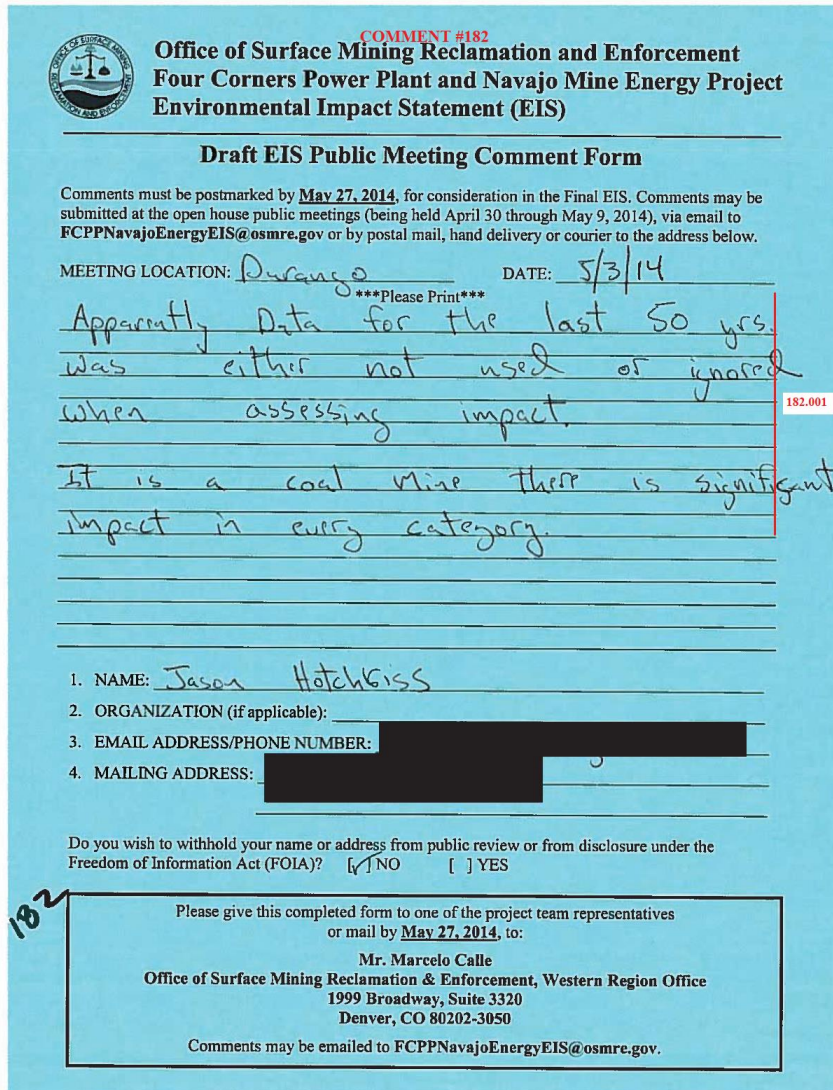 COMMENT #182
OFFICE OF SURFACE MINING
RECLAMATION AND ENFORCEMENT
Office of Surface Mining Reclamation and Enforcement
Four Corners Power Plant and Navajo Mine Energy Project
Environmental Impact Statement (EIS)
Draft EIS Public Meeting Comment Form
Comments must be postmarked by May 27, 2014, for consideration in the Final EIS. Comments may be
submitted at the open house public meetings (being held April 30 through May 9, 2014), via email to
FCPPNavajoEnergyEIS@osmre.gov or by postal mail, hand delivery or courier to the address below.
MEETING LOCATION: Durango DATE: 5/3/14
***Please Print***
Apparently Data for the last 50 yrs.
was either not used or ignored
when assessing impact.
182.001
It is a coal Mine there is significant
impact in every category.
1. NAME: Jason Hotchkiss
2. ORGANIZATION (if applicable):
3. EMAIL ADDRESS/PHONE NUMBER:
4. MAILING ADDRESS:
Do you wish to withhold your name or address from public review or from disclosure under the
Freedom of Information Act (FOIA)? [✓] NO [ ] YES
182
Please give this completed form to one of the project team representatives
or mail by May 27, 2014, to:
Mr. Marcelo Calle
Office of Surface Mining Reclamation & Enforcement, Western Region Office
1999 Broadway, Suite 3320
Denver, CO 80202-3050
Comments may be emailed to FCPPNavajoEnergyEIS@osmre.gov.